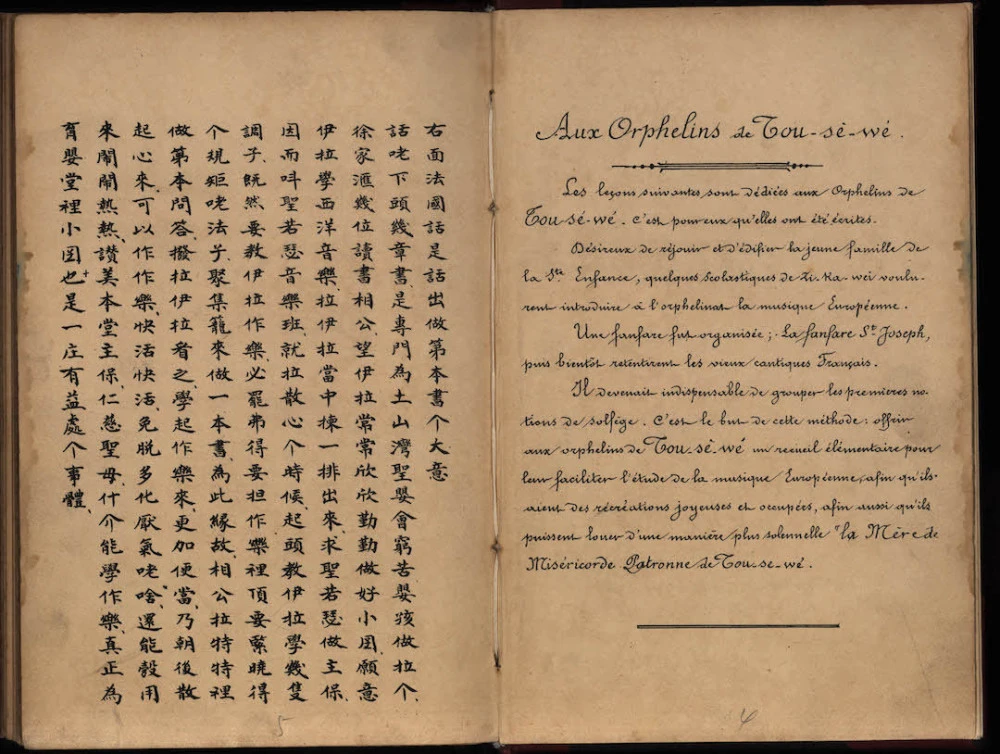 Aux Orphelins de Tou-sè-wé.
Les leçons suivantes sont dédiées aux Orphelins de
Tou-sé-wé. C'est pour eux qu'elles ont été écrites.
Désireux de réjouir et d'édifier la jeune famille de
la Ste Enfance, quelques Scolastiques de Zi-Ka-wei voulu-
rent introduire à l'orphelinat la musique Européenne.
Une fanfare fut organisée; La fanfare St Joseph,
puis bientôt retentirent les vieux cantiques Français.
Il devenait indispensable de grouper les premières no-
tions de solfége. C'est le but de cette méthode: offrir
aux orphelins de Tou-sè-wé un recueil élémentaire pour
leur faciliter l'étude de la musique Européenne, afin qu'ils
aient des récréations joyeuses et occupées, afin aussi qu'ils
puissent louer d'une manière plus solennelle la Mère de
Miséricorde Patronne de Tou-se-wé.
4
右面法國話是話出做第本書个大意
話咾下頭幾章書、是專門為土山灣聖嬰會窮苦嬰孩做拉个、
徐家滙幾位讀書相公、望伊拉常常欣欣勤勤做好小囝、願意
伊拉學西洋音樂、拉伊拉當中揀一排出來、求聖若瑟做主保、
因而呌聖若瑟音樂班、就拉散心个時候、起頭教伊拉學幾隻
調子、旣然要教伊拉作樂、必罷弗得要担作樂裡頂要緊曉得
个規矩咾法子、聚集籠來做一本書、為此緣故、相公拉特特裡
做第本問答、撥拉伊拉看之、學起作樂來、更加便當、乃朝後散
起心來、可以作作樂、快活快活、免脫多化厭氣咾啥、還能彀用
來鬧鬧熱熱、讃美本堂主保、仁慈聖母、什介能學作樂、真正為
育嬰堂裡小囝也是一庄有益處个事體、
5